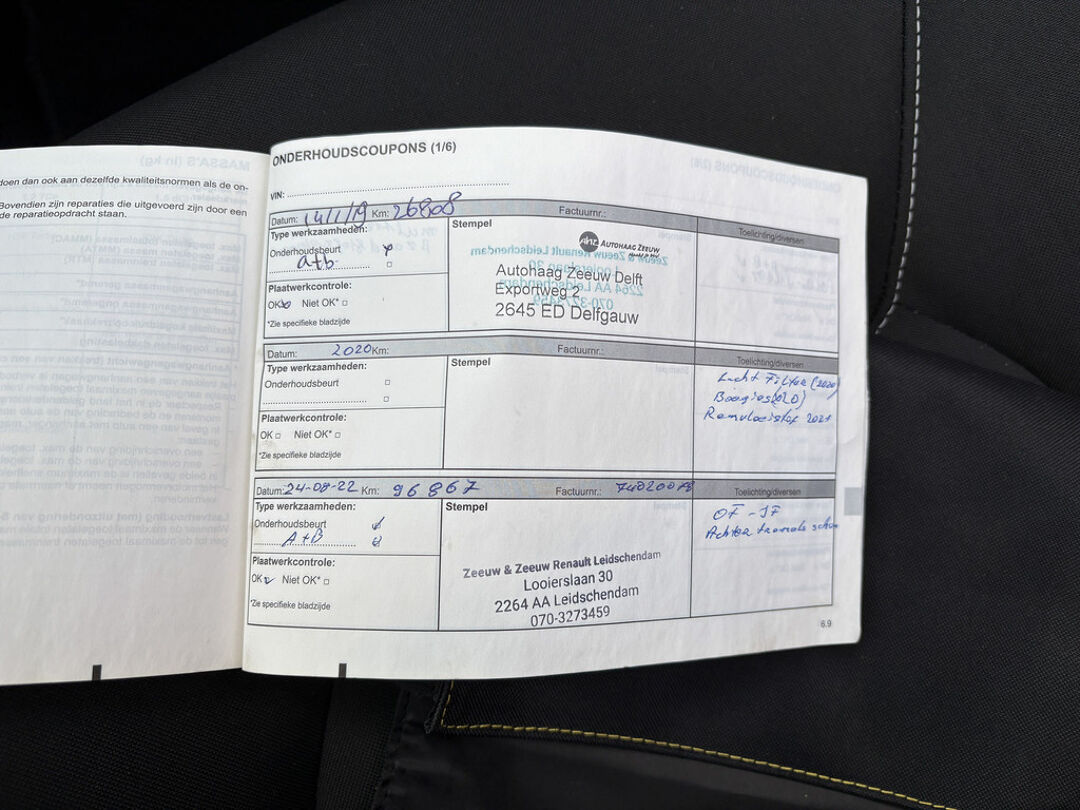 doen dan ook aan dezelfde kwaliteitsnormen als de on-
Bovendien zijn reparaties die uitgevoerd zijn door een
de reparatieopdracht staan.
ONDERHOUDSCOUPONS (1/6)
VIN:
Datum: 14/1/19 Km: 26808 Factuurnr.: Toelichting/diversen
Type werkzaamheden:
Onderhoudsbeurt
a+b
Plaatwerkcontrole:
OK Niet OK*
*Zie specifieke bladzijde
Stempel
AHZ AUTOHAAG ZEEUW
Autohaag Zeeuw Delft
Exportweg 2
2645 ED Delfgauw
Datum: 2020 Km: Factuurnr.: Toelichting/diversen
Type werkzaamheden:
Onderhoudsbeurt
Plaatwerkcontrole:
OK Niet OK*
*Zie specifieke bladzijde
Stempel
Lucht Filter (2020)
Remvloeistof 2021
Datum: 24-08-22 Km: 96867 Factuurnr.: Toelichting/diversen
Type werkzaamheden:
Onderhoudsbeurt
A+B
Plaatwerkcontrole:
OK Niet OK*
*Zie specifieke bladzijde
Stempel
Zeeuw & Zeeuw Renault Leidschendam
Looierslaan 30
2264 AA Leidschendam
070-3273459
OF - IF
Achter
6.9